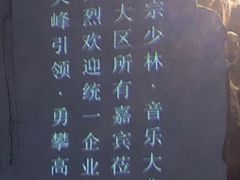 宗少林·音乐大
大区所有嘉宾莅
烈欢迎统一企业
峰引领·勇攀高